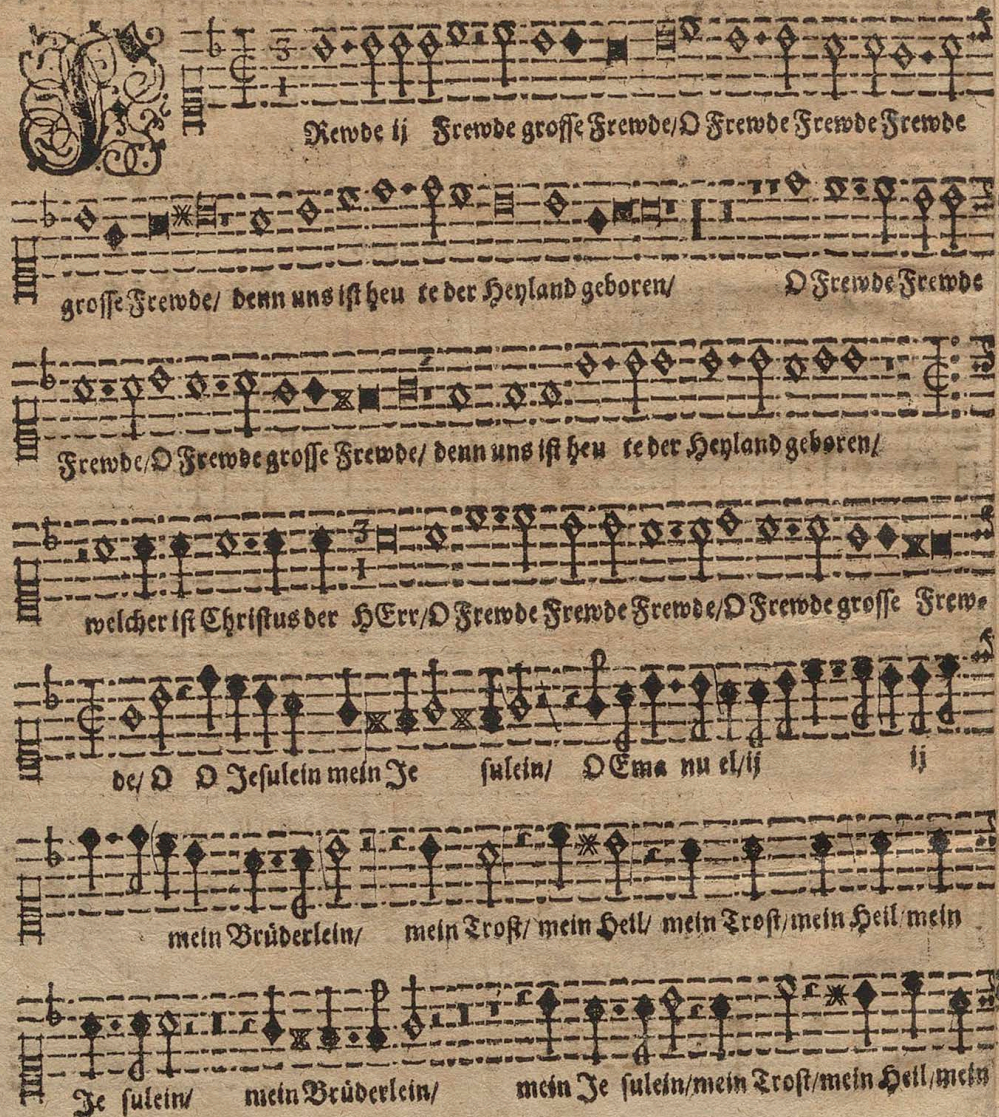 FRewde ij Frewde grosse Frewde/O Frewde Frewde Frewde
grosse Frewde/ denn uns ist heu te der Heyland geboren/ O Frewde Frewde
Frewde/O Frewde grosse Frewde/ denn uns ist heu te der Heyland geboren/
welcher ist Christus der HErr/O Frewde Frewde Frewde/O Frewde grosse Frew-
de/ O O Jesulein mein Je sulein/ O Ema nu el/ij ij
mein Brüderlein/ mein Trost/ mein Heil/ mein Trost/mein Heil/mein
Je sulein/ mein Brüderlein/ mein Je sulein/mein Trost/mein Heil/mein